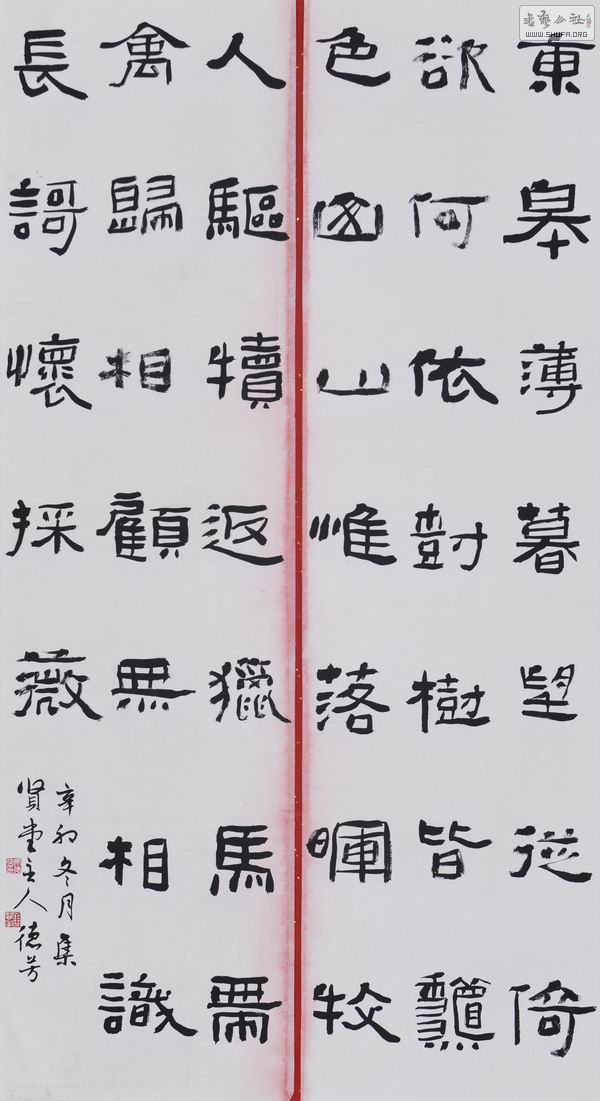 書藝公社
WWW.SHUFA.ORG
東皋薄暮望徙倚
欲何依尌樹皆龝
色山山惟落暉牧
人驅犢返獵馬帶
禽歸相顧無相識
長謌懷採薇
辛卯冬月集
贤堂主人德芳